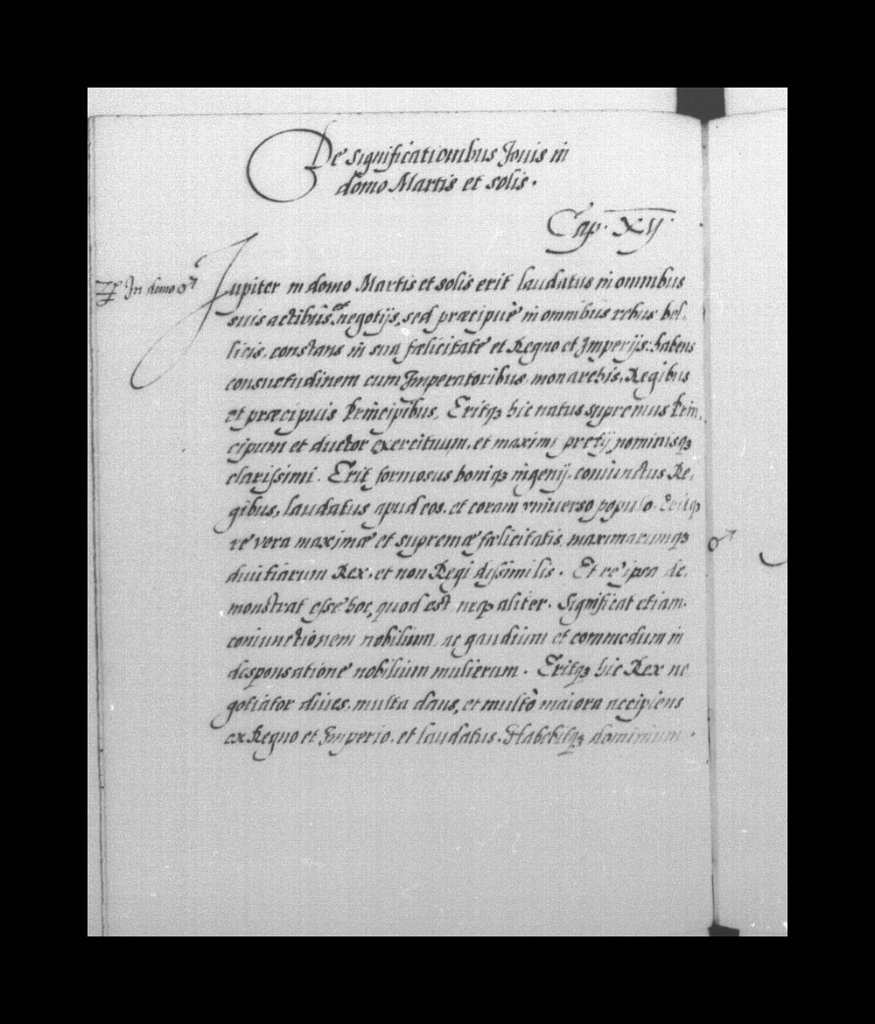 De significationibus Jouis in
domo Martis et solis.
Cap. XV
♃ In domo ♂
Jupiter in domo Martis et solis erit laudatus in omnibus
suis actibus et negotijs, sed præcipuè in omnibus rebus bel-
licis, constans in sua fælicitate et Regno et Imperijs: habens
consuetudinem cum Imperatoribus, monarchis, Regibus
et præcipuis Principibus, Eritq₃ hic natus supremus Prin-
cipum et ductor exercituum, et maximi pretij nominisq₃
clarissimi. Erit formosus boniq₃ ingenij, coniunctus Re-
gibus, laudatus apud eos, et coram vniuerso populo. Eritq₃
re vera maximæ et supremæ fælicitatis, maximarumq₃
diuitiarum Rex, et non Regi dissimilis. Et re ipsa de-
monstrat esse hoc, quod est neq₃ aliter. Significat etiam
coniunctionem nobilium, ac gaudium et commodum in
desponsatione nobilium mulierum. Eritq₃ hic Rex ne
gotiator diues, multa dans, et multò maiora accipiens
ex Regno et Imperio, et laudatus. Habebitq₃ dominium
♂